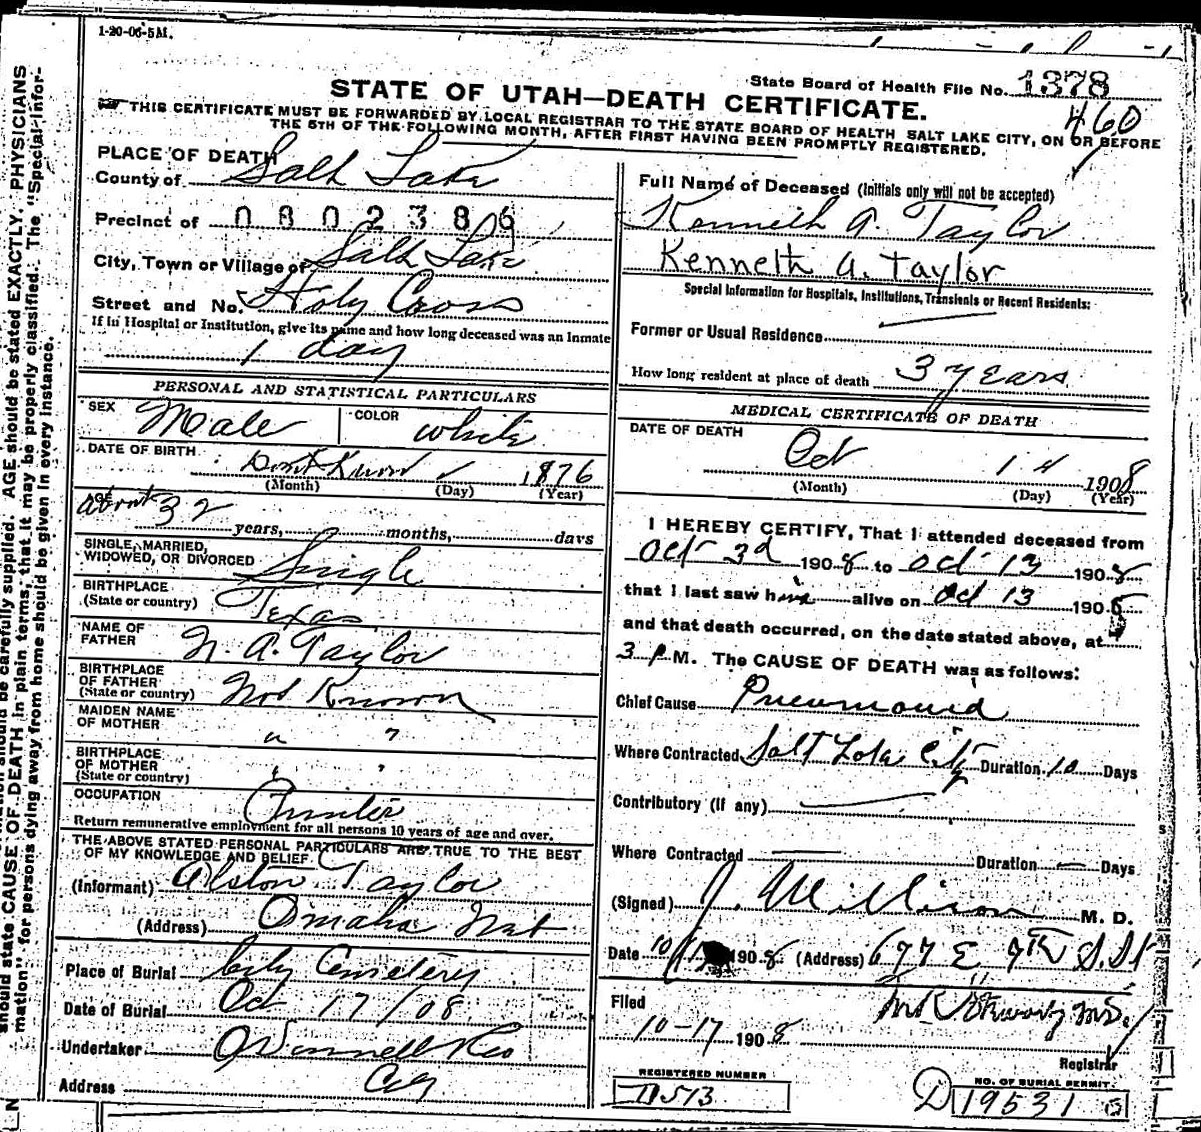 1-20-06-5M.
State Board of Health File No. 1378
460
STATE OF UTAH—DEATH CERTIFICATE.
THIS CERTIFICATE MUST BE FORWARDED BY LOCAL REGISTRAR TO THE STATE BOARD OF HEALTH SALT LAKE CITY, ON OR BEFORE
THE 5TH OF THE FOLLOWING MONTH, AFTER FIRST HAVING BEEN PROMPTLY REGISTERED.
PLACE OF DEATH
County of Salt Lake
Precinct of 0802386
City, Town or Village of Salt Lake
Street and No. Holy Cross
If in Hospital or Institution, give its name and how long deceased was an Inmate
1 day
PERSONAL AND STATISTICAL PARTICULARS
SEX Male COLOR white
DATE OF BIRTH Dont Know 1876
(Month) (Day) (Year)
AGE about 32 years, months, days
SINGLE, MARRIED,
WIDOWED, OR DIVORCED Single
BIRTHPLACE
(State or country) Texas
NAME OF
FATHER N. A. Taylor
BIRTHPLACE
OF FATHER
(State or country) Not Known
MAIDEN NAME
OF MOTHER " "
BIRTHPLACE
OF MOTHER
(State or country) " "
OCCUPATION Printer
Return remunerative employment for all persons 10 years of age and over.
THE ABOVE STATED PERSONAL PARTICULARS ARE TRUE TO THE BEST
OF MY KNOWLEDGE AND BELIEF
(Informant) Alston Taylor
(Address) Omaha Neb
Place of Burial City Cemetery
Date of Burial Oct 17/08
Undertaker O'Donnell &Co
Address City
Full Name of Deceased (Initials only will not be accepted)
Kenneth A. Taylor
Kenneth A. Taylor
Special Information for Hospitals, Institutions, Transients or Recent Residents:
Former or Usual Residence
How long resident at place of death 3 years
MEDICAL CERTIFICATE OF DEATH
DATE OF DEATH
Oct 14 1908
(Month) (Day) (Year)
I HEREBY CERTIFY, That I attended deceased from
Oct 3d 1908 to Oct 13 1908
that I last saw him alive on Oct 13 190
and that death occurred, on the date stated above, at
3 P.M. The CAUSE OF DEATH was as follows:
Chief Cause Pneumonia
Where Contracted Salt Lake City Duration 10 Days
Contributory (if any)
Where Contracted Duration Days
(Signed) J. Millison M. D.
Date 10/ 1908 (Address) 677 E 7th S. St
Filed
10-17 1908
Registrar
REGISTERED NUMBER
D513
NO. OF BURIAL PERMIT
D 19531
should state CAUSE OF DEATH in plain terms, that it may be properly classified. The "Special Infor-
mation" for persons dying away from home should be given in every instance.
should be carefully supplied. AGE should be stated EXACTLY. PHYSICIANS